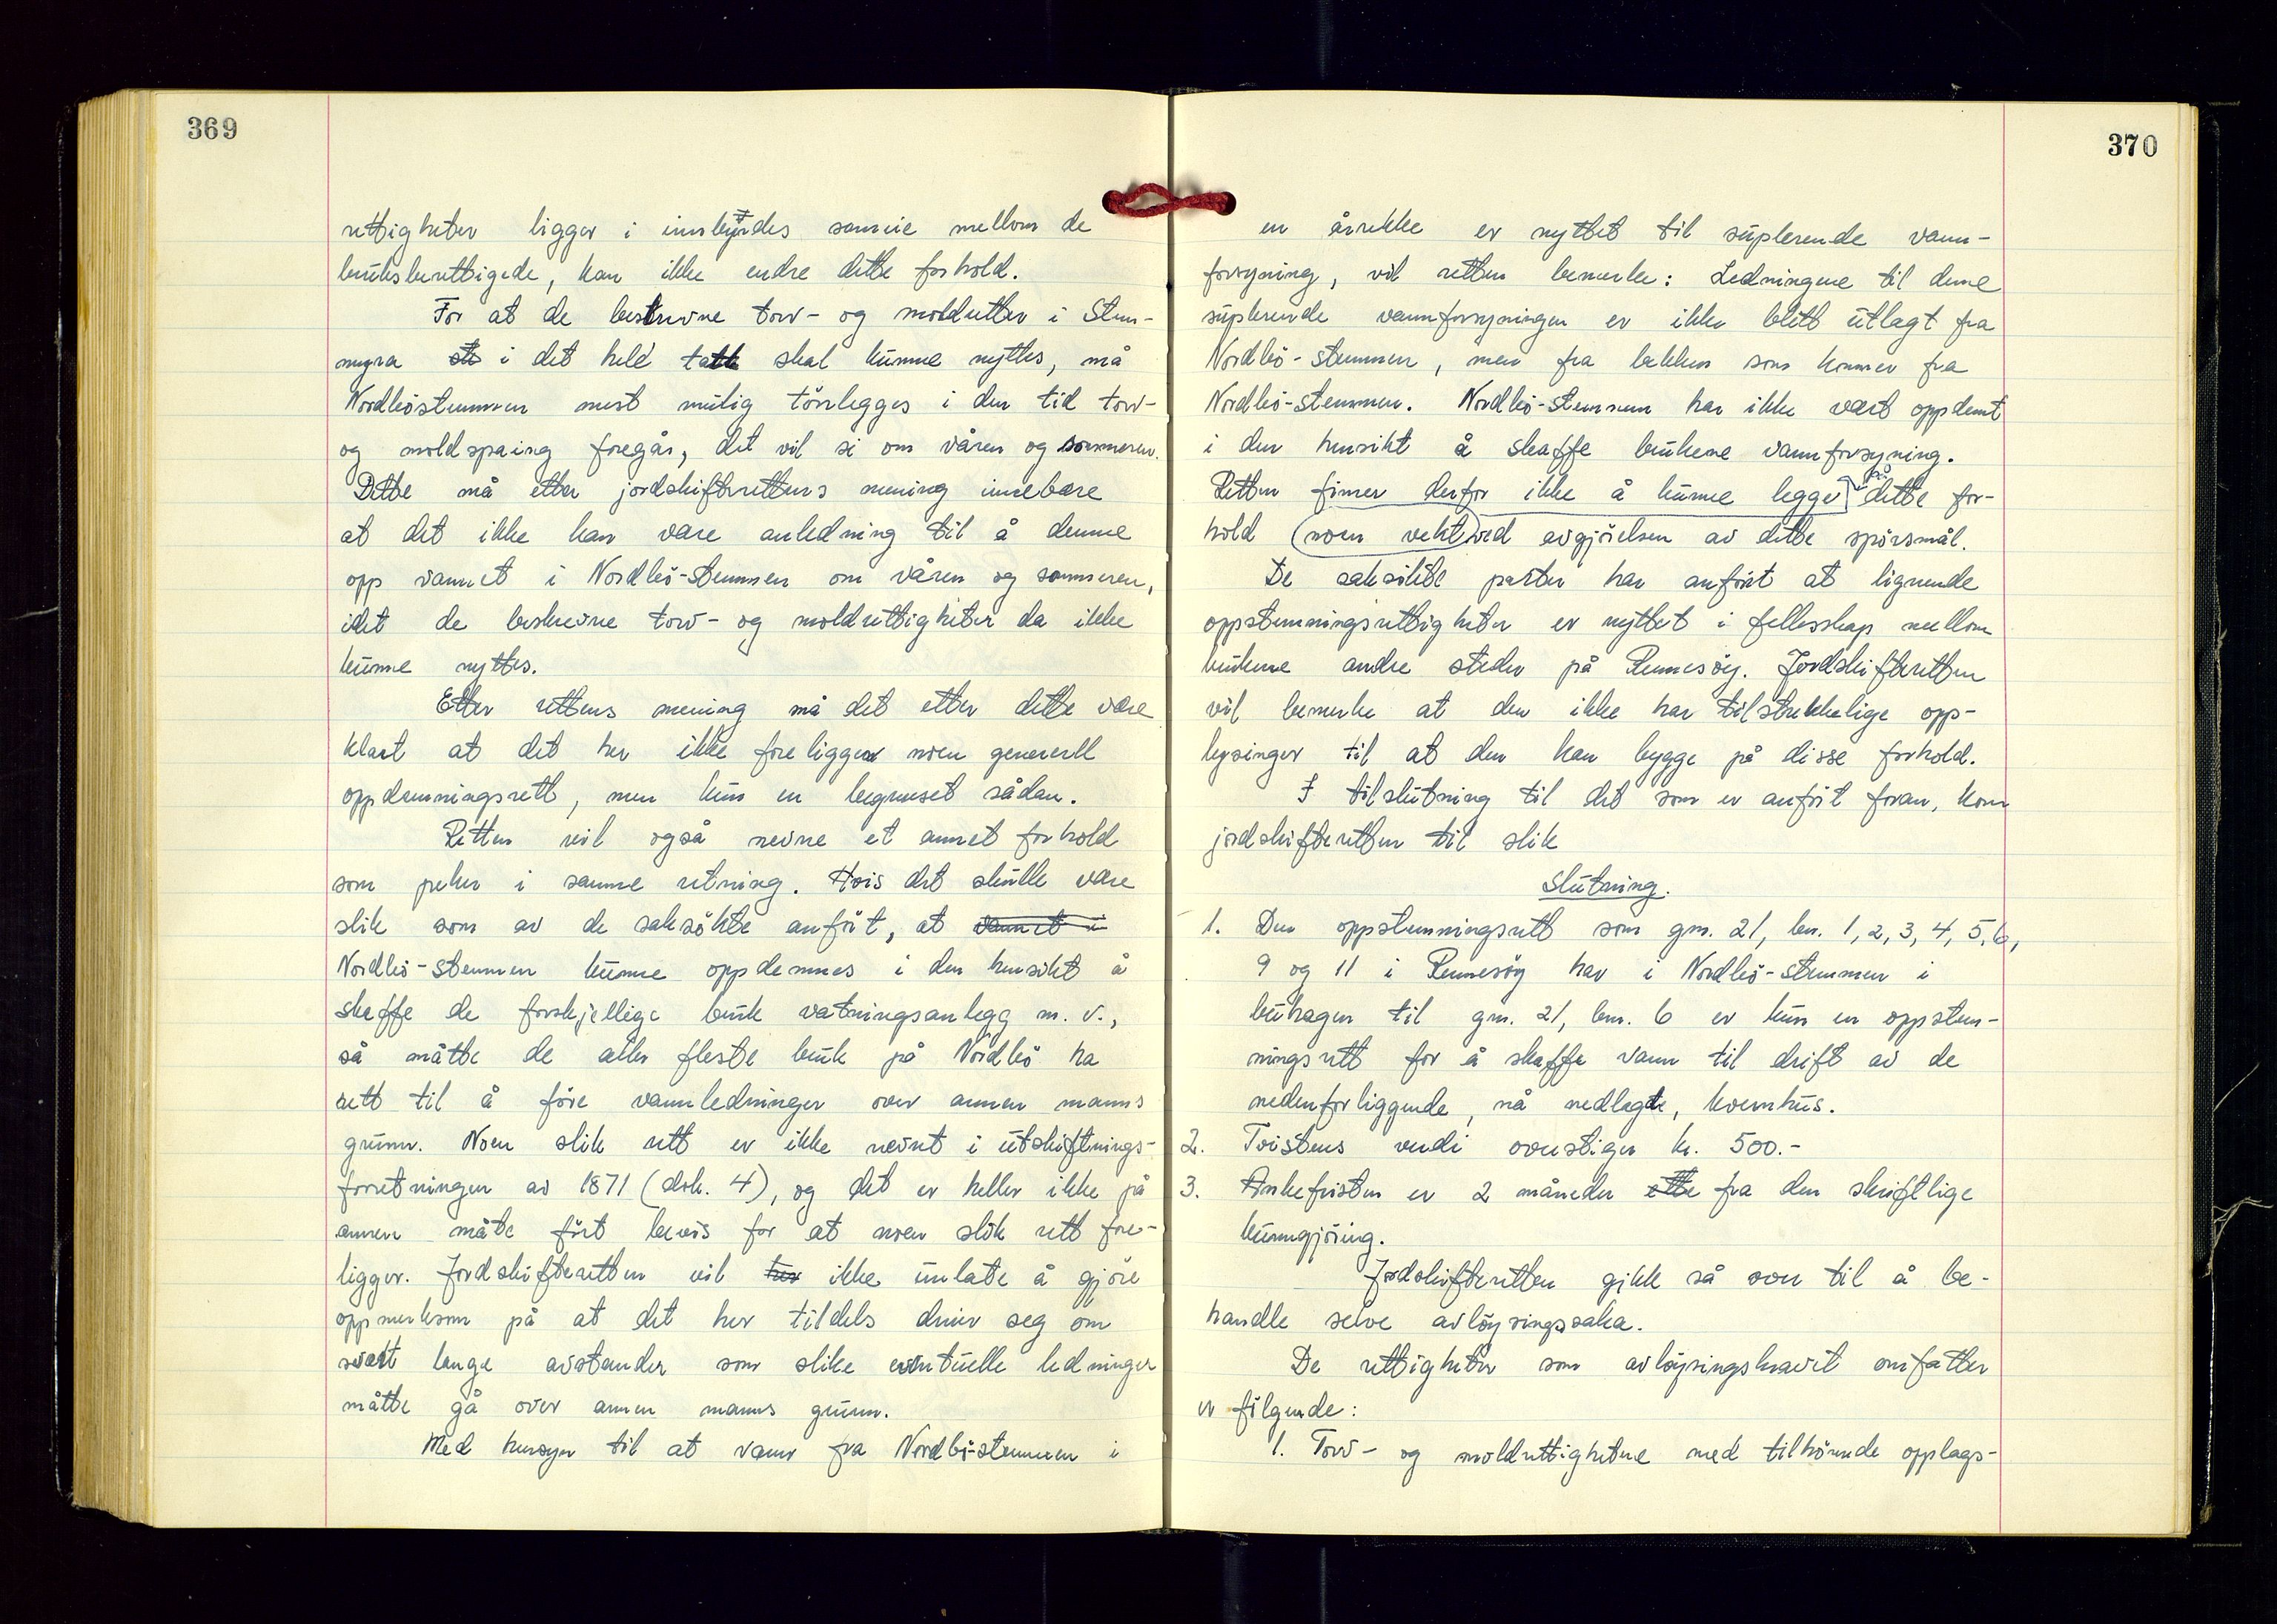 369
rettigheter ligger i innbyrdes sameie mellom de
bruksberettigede, kan ikke endre dette forhold.
For at de beskrevne torv- og moldretter i Stem-
myra i det hele tatt skal kunne nyttes, må
Nordböstemmen mest mulig törrlegges i den tid torv-
og moldspaing foregår, det vil si om våren og sommeren.
Dette må etter jordskifterettens mening innebære
at det ikke kan være anledning til å demme
opp vannet i Nordbö-stemmen om våren og sommeren,
idet de beskrevne torv- og moldrettigheter da ikke
kunne nyttes.
Etter rettens mening må det etter dette være
klart at det her ikke foreligger noen generell
oppdemningsrett, men kun en begrenset sådan.
Retten vil også nevne et annet forhold
som peker i samme retning. Hvis det skulle være
slik som av de saksökte anfört, at vannet i
Nordbö-stemmen kunne oppdemmes i den hensikt å
skaffe de forskjellige bruk vatningsanlegg m. v.,
så måtte de aller fleste bruk på Nordbö ha
rett til å före vannledninger over annen manns
grunn. Noen slik rett er ikke nevnt i utskiftnings-
forretningen av 1871 (dok. 4), og det er heller ikke på
annen måte fört bevis for at noen slik rett fore-
ligger. Jordskifteretten vil her ikke unlate å gjöre
oppmerksom på at det her tildels dreier seg om
svært lange avstander som slike eventuelle ledninger
måtte gå over annen manns grunn.
Med hensyn til at vann fra Nordbö-stemmen i
370
en årrekke er nyttet til suplerende vann-
forsyning, vil retten bemerke: Ledningene til denne
suplerende vannforsyningen er ikke blitt utlagt fra
Nordbö-stemmen, men fra bekken som kommer fra
Nordbö-stemmen. Nordbö-stemmen har ikke vært oppdemt
i den hensikt å skaffe brukene vannforsyning.
Retten finner derfor ikke å kunne legge på dette for-
hold noen vekt ved avgjörelsen av dette spörsmål.
De saksökte parter har anfört at lignende
oppstemningsrettigheter er nyttet i fellesskap mellom
brukene andre steder på Rennesöy. Jordskifteretten
vil bemerke at den ikke har tilstrekkelige opp-
lysinger til at den kan bygge på disse forhold.
I tilslutning til det som er anfört foran, kom
jordskifteretten til slik
Slutning.
1. Den oppstemningsrett som gnr. 21, bnr. 1, 2, 3, 4, 5, 6,
9 og 11 i Rennesöy har i Nordbö-stemmen i
buhagen til gnr. 21, bnr. 6 er kun en oppstem-
ningsrett for å skaffe vann til drift av de
nedenforliggende, nå nedlagte, kvernhus.
2. Tvistens verdi overstiger kr. 500.-
3. Ankefristen er 2 måneder etter fra den skriftlige
kunngjöring.
Jordskifteretten gikk så over til å be-
handle selve avlöysingssaka.
De rettigheter som avlöysingskravet omfatter
er fölgende:
1. Torv- og moldrettighetene med tilhörende opplags-